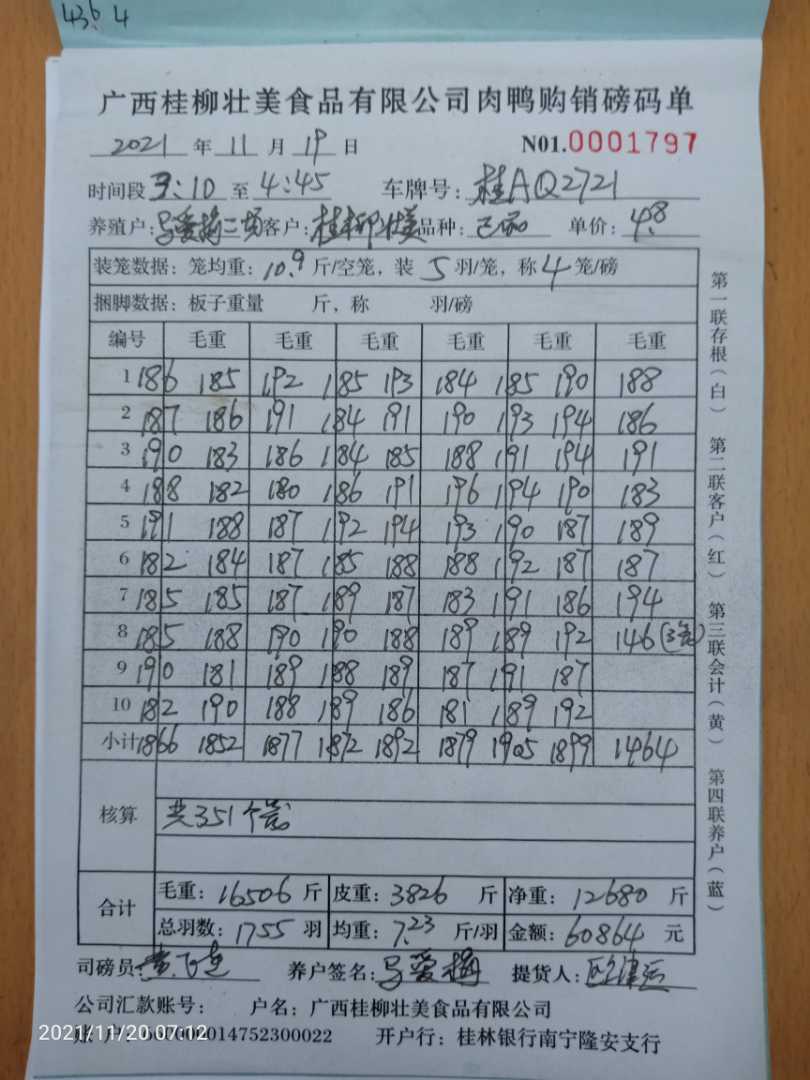 436 4
广西桂柳壮美食品有限公司肉鸭购销磅码单
2021 年 11 月 19 日 N01.0001797
时间段 3:10 至 4:45 车牌号: 桂AQ2721
养殖户: 马爱梅二场 客户: 桂柳壮美 品种: 单价: 4.8
装笼数据: 笼均重: 10.9 斤/空笼, 装 5 羽/笼, 称 4 笼/磅
捆脚数据: 板子重量 斤, 称 羽/磅
编号 毛重 毛重 毛重 毛重 毛重 毛重
1 186 185 192 185 193 184 185 190 188
2 187 186 191 184 191 190 193 194 186
3 190 183 186 184 185 188 191 194 191
4 188 182 180 186 191 196 194 190 183
5 191 188 187 192 194 193 190 187 189
6 182 184 187 185 188 188 192 187 187
7 185 185 187 189 187 183 191 186 194
8 185 188 190 190 188 189 189 192 146 (3笼)
9 190 181 189 188 189 187 191 187
10 182 190 188 189 186 181 189 192
小计 1866 1852 1877 1872 1892 1879 1905 1899 1464
核算 共351个笼
合计 毛重: 16506 斤 皮重: 3826 斤 净重: 12680 斤
总羽数: 1755 羽 均重: 7.23 斤/羽 金额: 60864 元
司磅员: 养户签名: 马爱梅 提货人:
公司汇款账号: 户名: 广西桂柳壮美食品有限公司
账户: 014752300022 开户行: 桂林银行南宁隆安支行
2021/11/20 07:02
第一联存根(白) 第二联客户(红) 第三联会计(黄) 第四联养户(蓝)